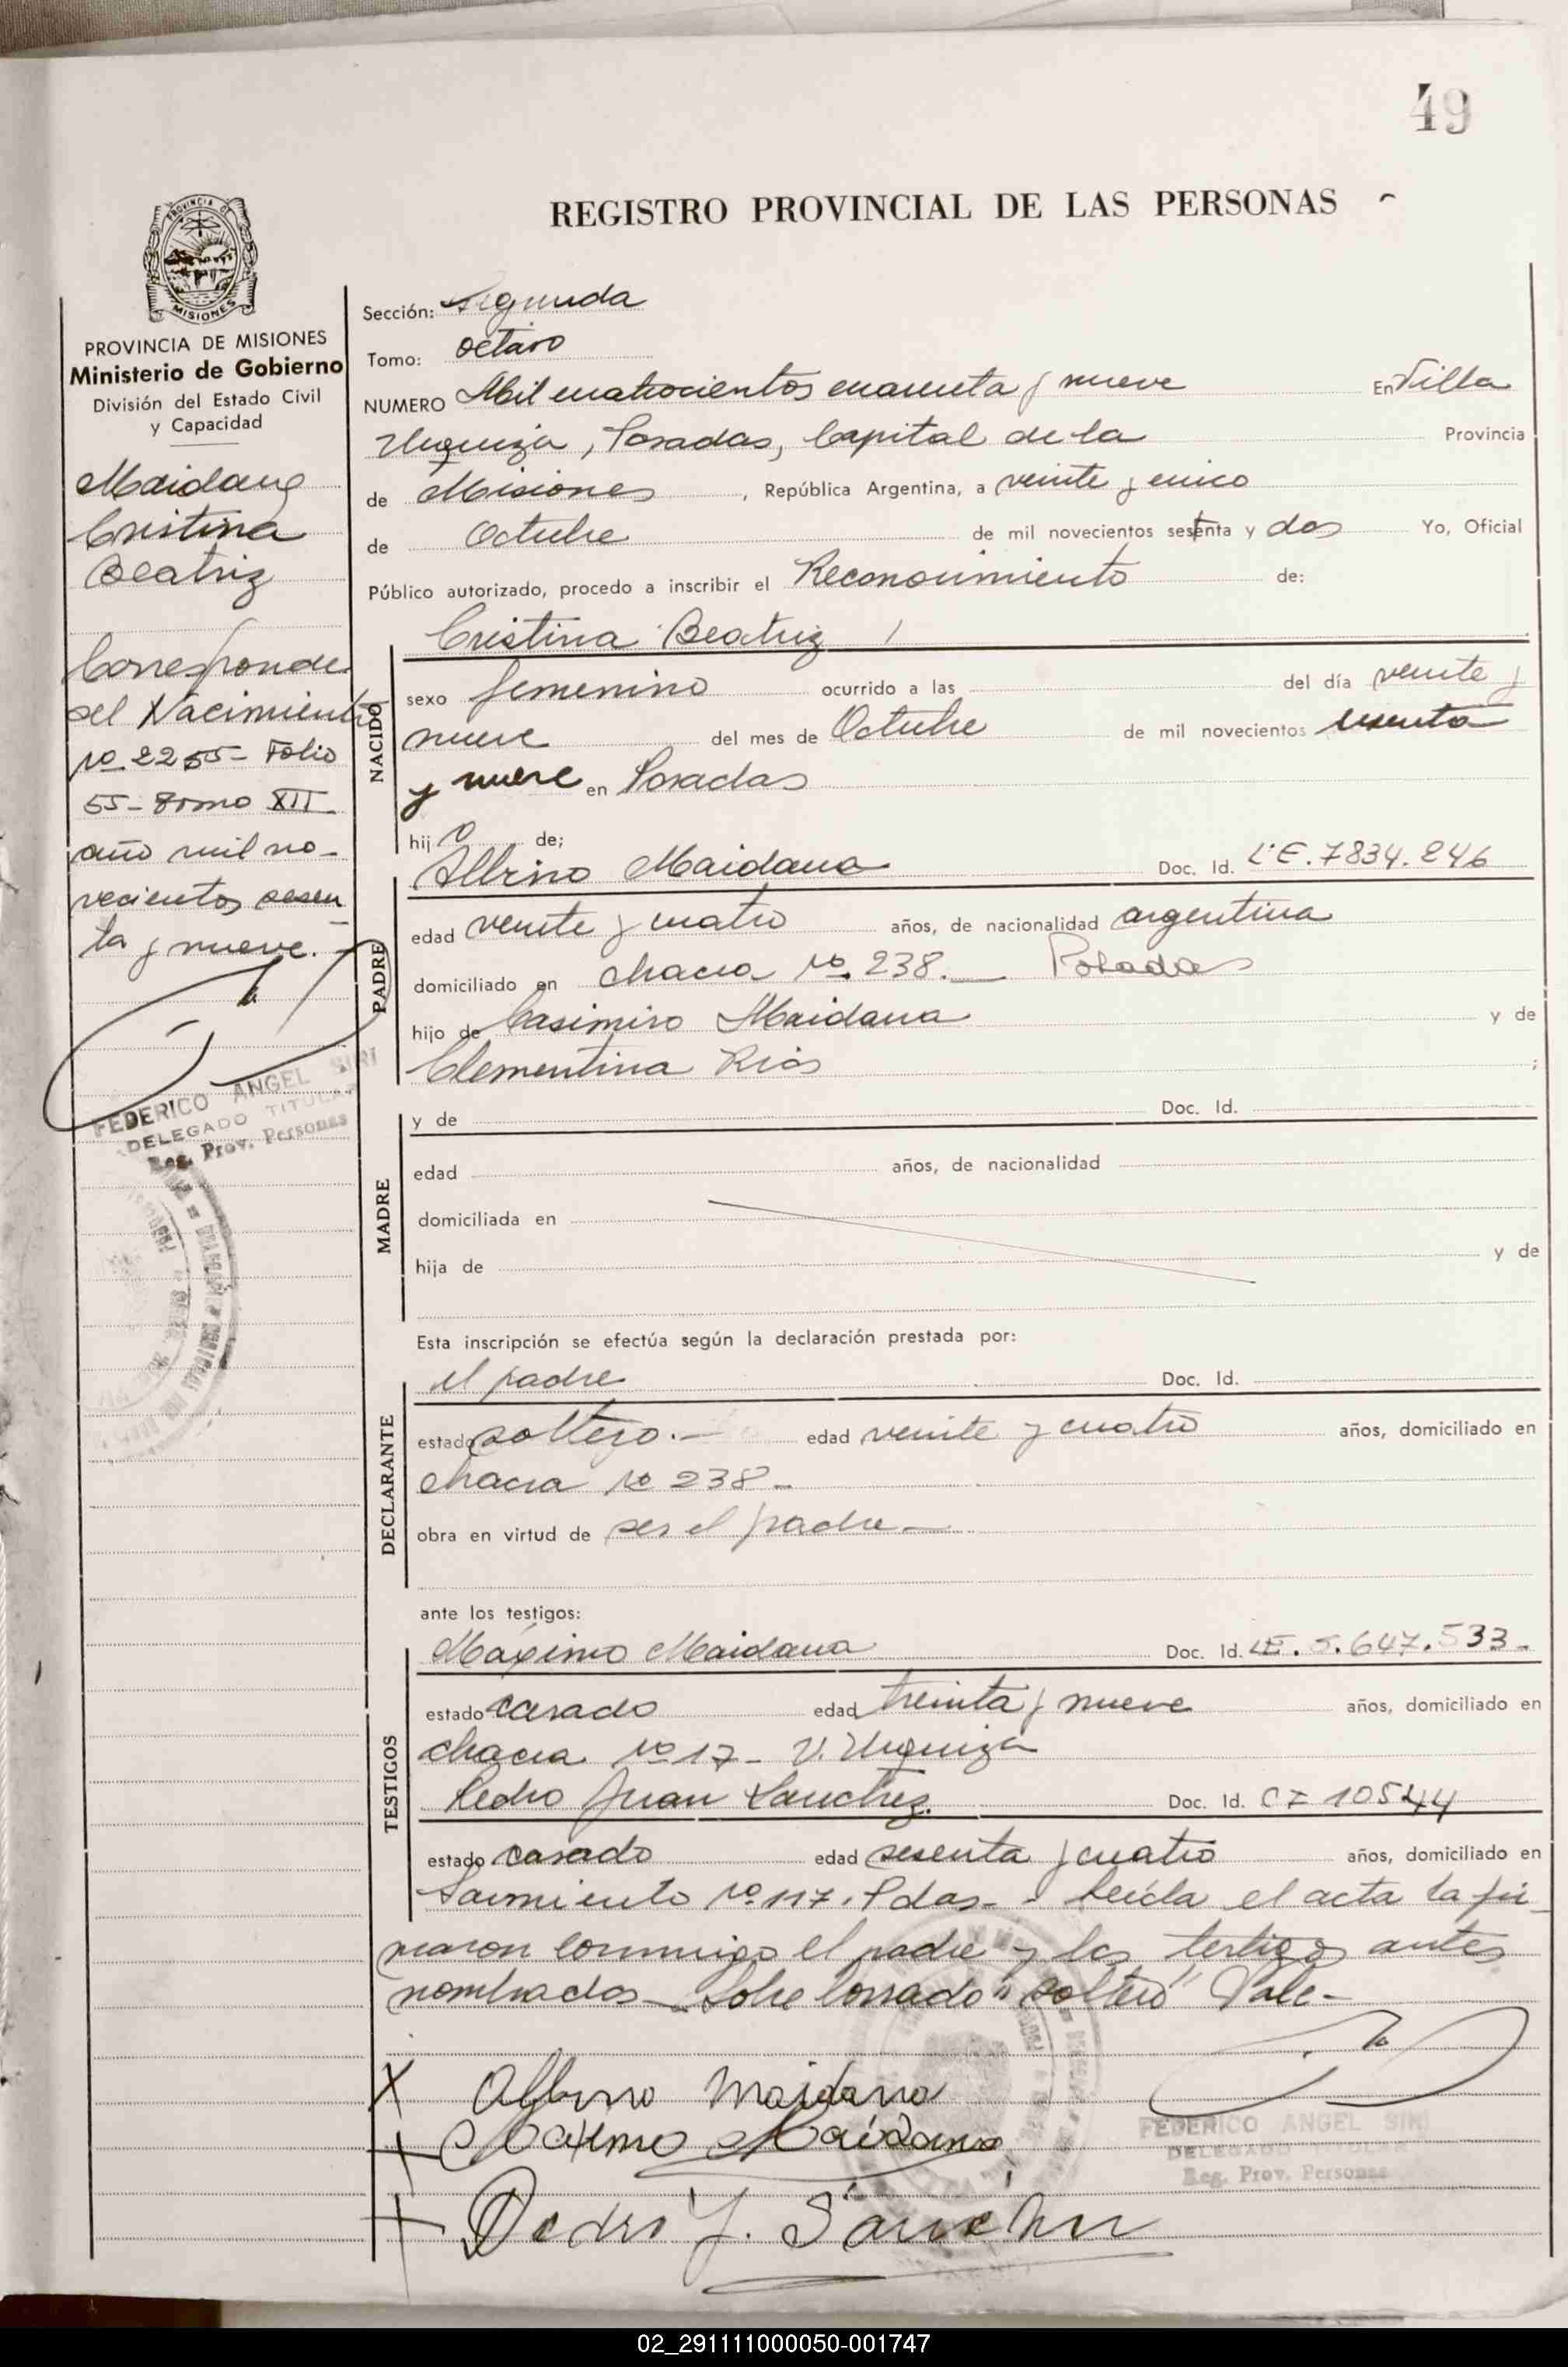 49
REGISTRO PROVINCIAL DE LAS PERSONAS
PROVINCIA DE
MISIONES
PROVINCIA DE MISIONES
Ministerio de Gobierno
División del Estado Civil
y Capacidad
Maidana
Cristina
Beatriz
Corresponde
del Nacimiento
nº 2255 - Folio
55 - Tomo XII
año mil no-
vecientos sesen
ta y nueve.
FEDERICO ANGEL SIRI
DELEGADO TITULAR
Reg. Prov. Personas
Sección: Segunda
Tomo: octavo
NUMERO Mil cuatrocientos cuarenta y nueve En Villa
Urquiza, Posadas, Capital de la Provincia
de Misiones, República Argentina, a veinte y cinco
de Octubre de mil novecientos setenta y dos Yo, Oficial
Público autorizado, procedo a inscribir el Reconocimiento de:
Cristina Beatriz /
NACIDO
sexo femenino ocurrido a las del día veinte y
nueve del mes de Octubre de mil novecientos sesenta
y nueve en Posadas
hij a de;
Albino Maidana Doc. Id. L.E. 7834.246
PADRE
edad veinte y cuatro años, de nacionalidad argentina
domiciliado en chacra nº 238.— Posadas
hijo de Casimiro Maidana y de
Clementina Rios ;
y de Doc. Id.
MADRE
edad años, de nacionalidad
domiciliada en
hija de y de
Esta inscripción se efectúa según la declaración prestada por:
el padre Doc. Id.
DECLARANTE
estado soltero.- edad veinte y cuatro años, domiciliado en
chacra nº 238-
obra en virtud de ser el padre-
ante los testigos:
Máximo Maidana Doc. Id. LE. 5.647.533-
TESTIGOS
estado casado edad treinta y nueve años, domiciliado en
chacra nº 17- V. Urquiza
Pedro Juan Sanchez. Doc. Id. CI 10544
estado casado edad sesenta y cuatro años, domiciliado en
Sarmiento nº 117. Pdas.- Leída el acta la fir
maron conmigo el padre y los testigos antes
nombrados- Sobre borrado "soltero" Vale-
X Albino Maidana
Maximo Maidana
Pedro J. Sánchez
FEDERICO ANGEL SIRI
DELEGADO TITULAR
Reg. Prov. Personas
02_291111000050-001747